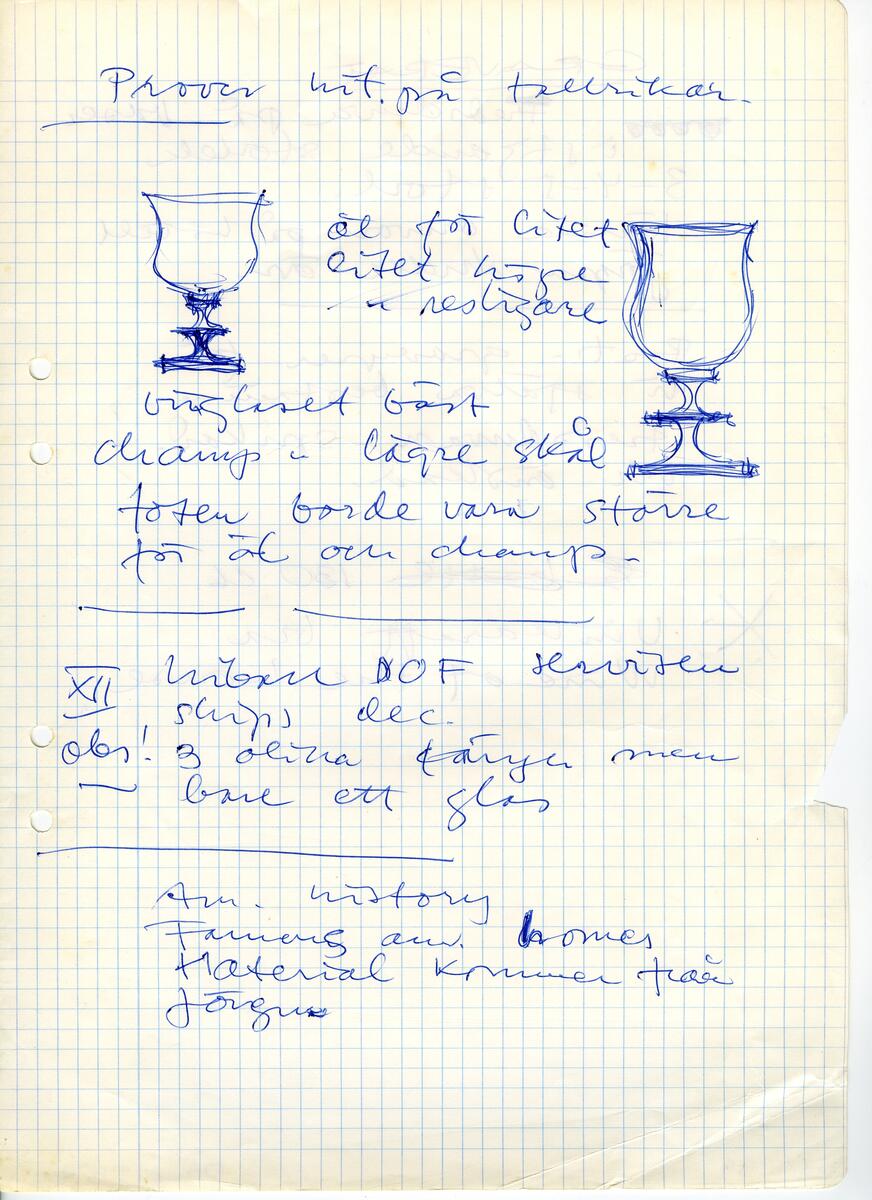 Prover hit. på tallrikar.
öl för litet
litet högre
–"– resligare
vinglaset bäst
champ – lägre skål
foten borde vara större
för öl och champ –
XII DOF servisen
ships dec.
obs! 3 olika färger men
bare ett glas
Am. history
Famous am. homes
Material kommer från
Jörgen